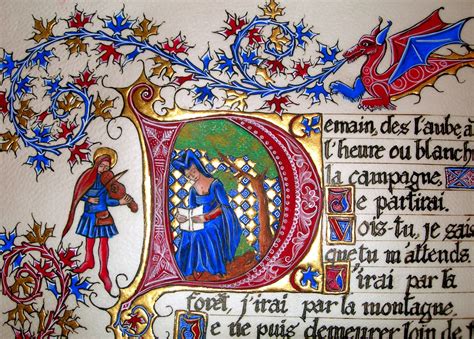 Demain, des l'aube, à
l'heure ou blanch
la campagne.
Je partirai.
Vois-tu, je sais
que tu m'attends.
J'irai par la
forêt, j'irai par la montagne.
Je ne puis demeurer loin de